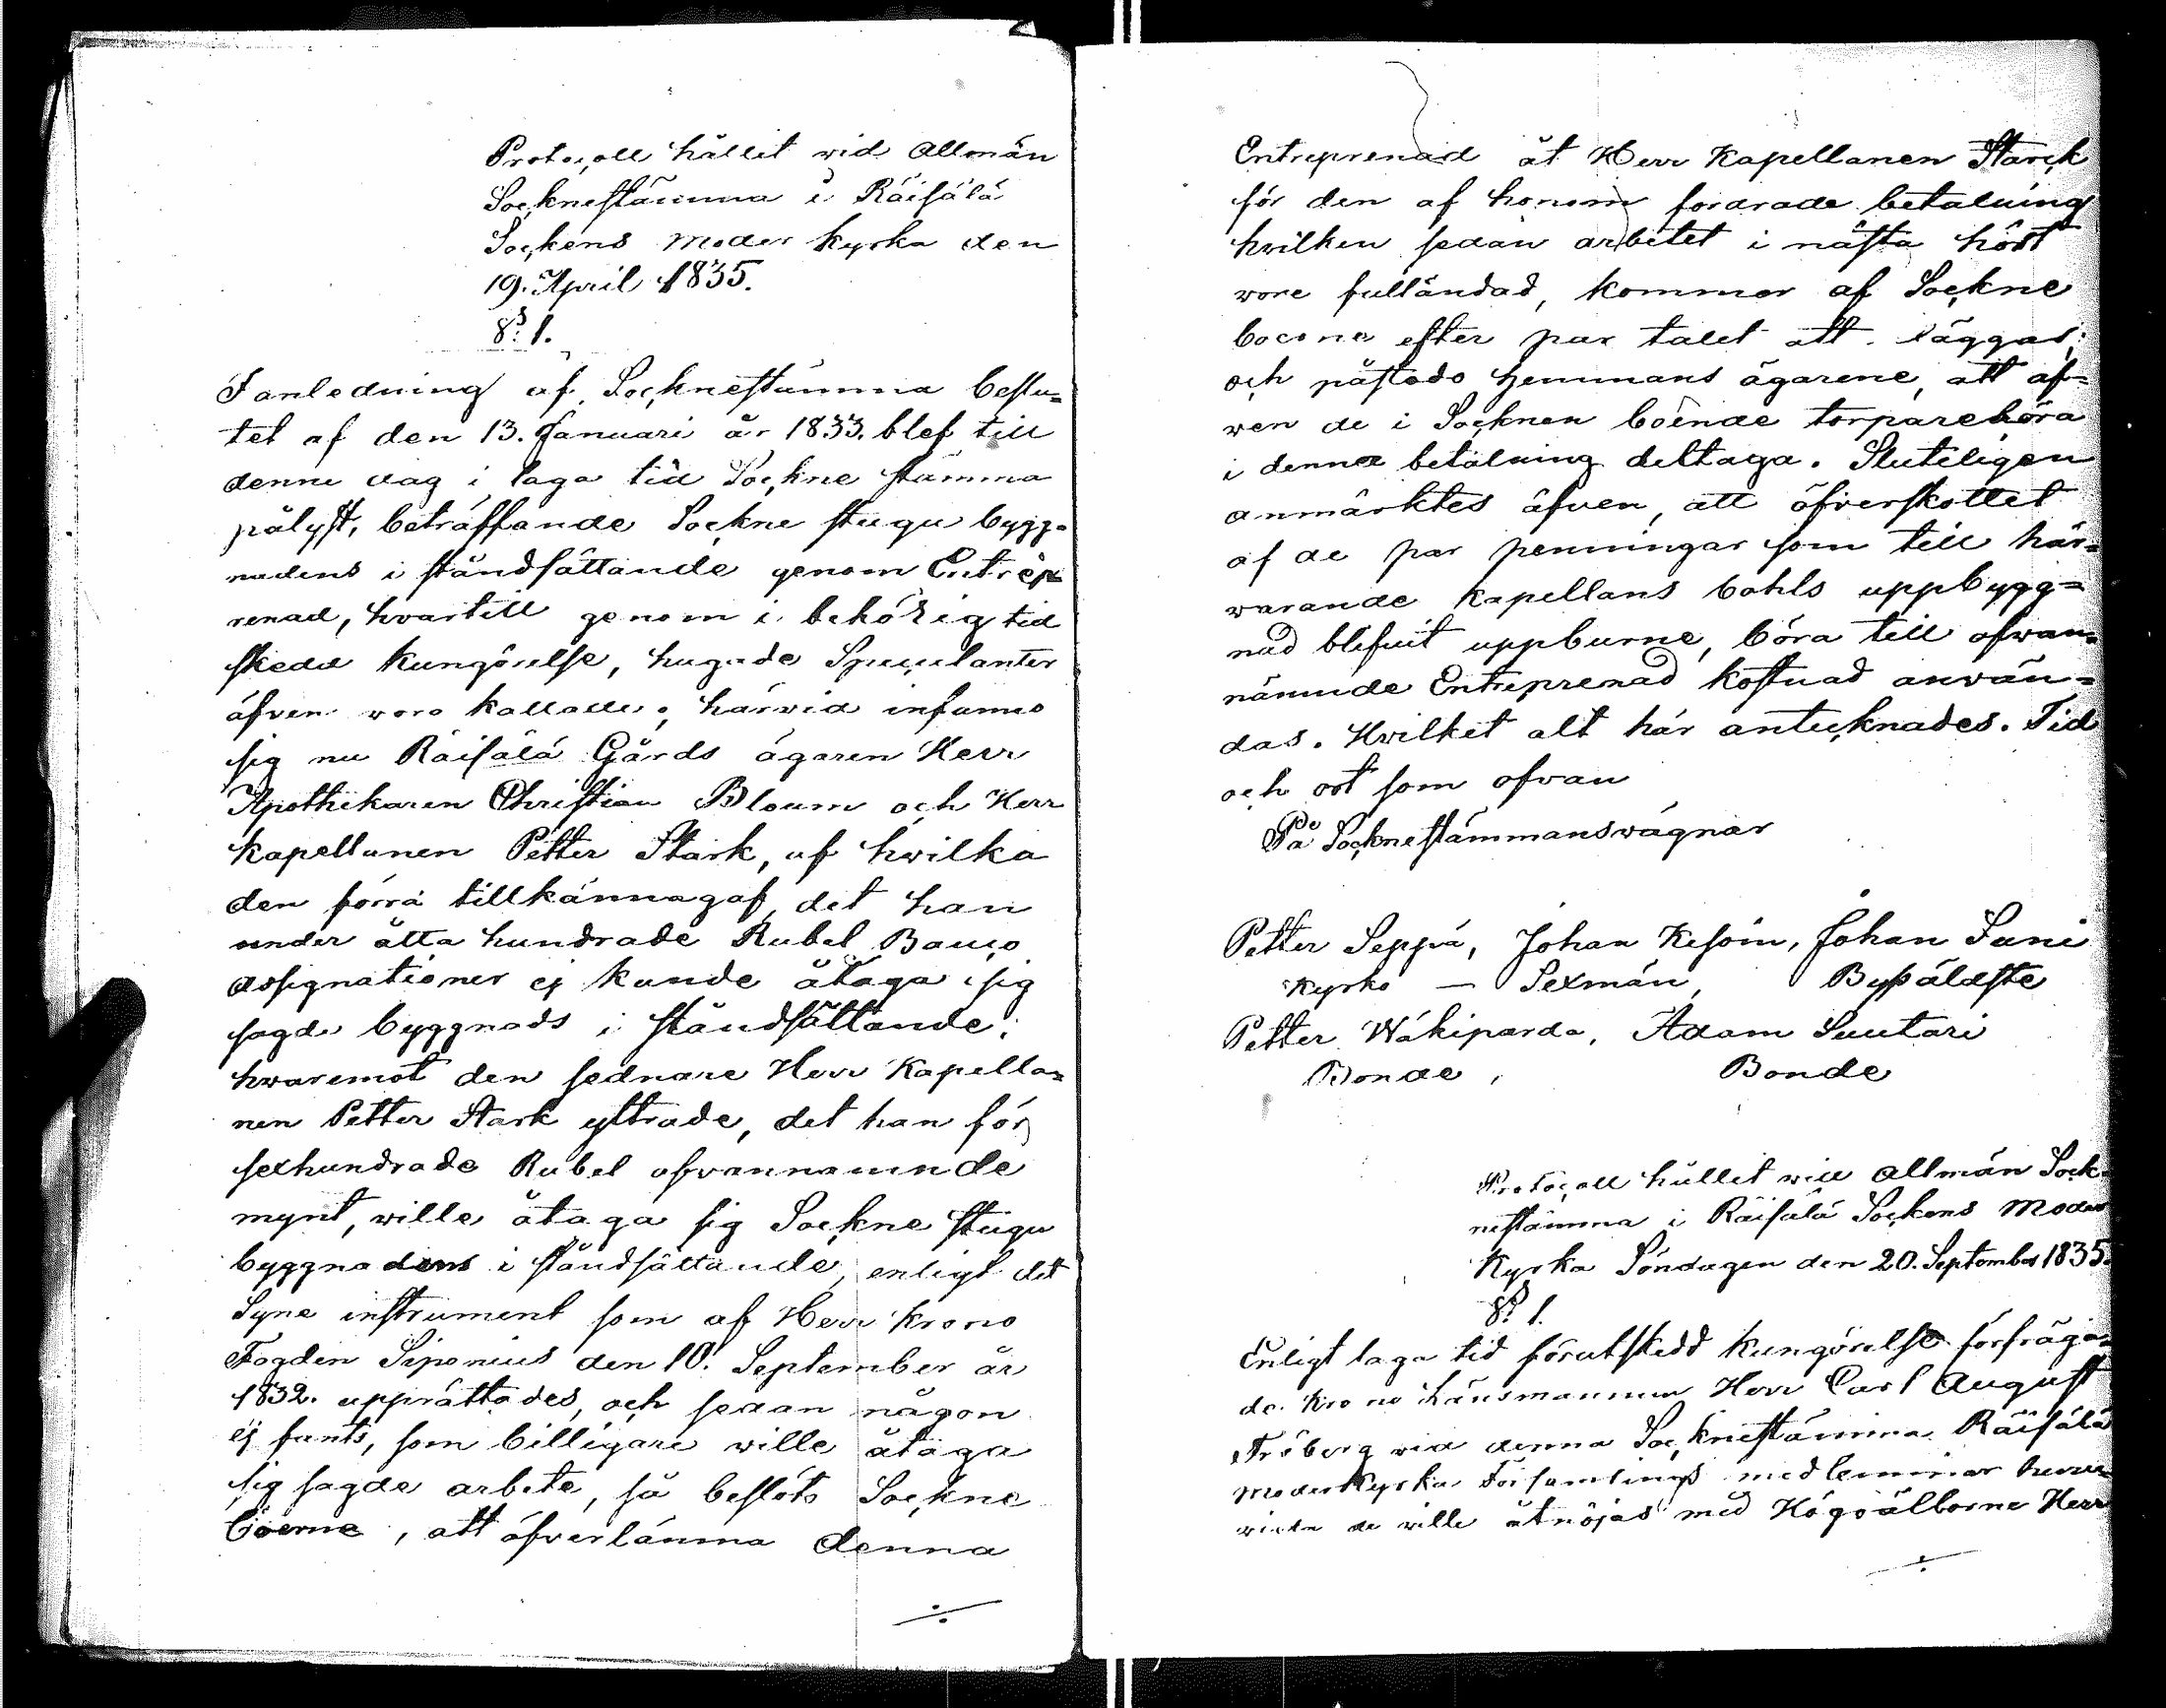 Protocoll hållit vid allmän
Socknestämma i Räisälä
Sockens moder kyrka den
19. April 1835.
§ 1.
I anledning af Socknestämma beslu=
tet af den 13. Januari år 1833. blef till
denne dag i laga tid Sockne stämma
pålyst, beträffande Sockne stugu bygg=
nadens i ståndsättande genom Entrep=
renad, hvartill genom i behörig tid
skedd kungörelse, hugade Speculanter
äfven voro kallade; härvid infunno
sig nu Räisälä Gårds ägaren Herr
Apothekaren Christian Bloum och Herr
Kapellanen Petter Stark, af hvilka
den förra tillkännagaf, det han
under åtta hundrade Rubel Banco
assignationer ej kunde åtaga sig
sagde byggnads i ståndsättande;
hvaremot den sednare Herr Kapella=
nen Petter Stark yttrade, det han för
sexhundrade Rubel ofvannämnde
mynt, ville åtaga sig Sockne stugu
byggnadens i ståndsättande, enligt det
Syne instrument som af Herr Krono
Fogden Siponius den 10. September år
1832. upprättades, och sedan någon
ej fants, som billigare ville åtaga
sig sagde arbete, så beslöts Sockne
boerne, att öfverlämna denna
Entreprenad åt Herr Kapellanen Starck
för den af honom fordrade betalning
hvilken sedan arbetet i nästa höst
vore fulländad, kommer af Sockne
boerne efter par talet att läggas;
och påstodo hemmans ägarene, att äf=
ven de i Socknen boende torpare böra
i denna betalning deltaga. Sluteligen
anmärktes äfven, att öfverskottet
af de par penningar som till här=
varande Kapellans bohls uppbygg=
nad blefvit uppburne, böra till ofvan=
nämnde Entreprenad kostnad använ=
das. Hvilket alt här antecknades. Tid
och ort som ofvan
På Socknestämmans vägnar
Petter Seppä, Johan Kesoin, Johan Suni
Kyrko — Sexmän, Bysäldste
Petter Wäkiparda, Adam Suutari
Bonde, Bonde
Protocoll hållit vid allmän Sock=
nestämma i Räisälä Sockens Moder
Kyrka Söndagen den 20. September 1835.
§ 1.
Enligt laga tid förutskedd kungörelse förfråga=
de Krono Länsmannen Herr Carl August
Fröberg vid denna Socknestämma Räisälä
Moderkyrka Församlings medlemmar huru=
vida de ville åtnöjas med Högvälborne Herr